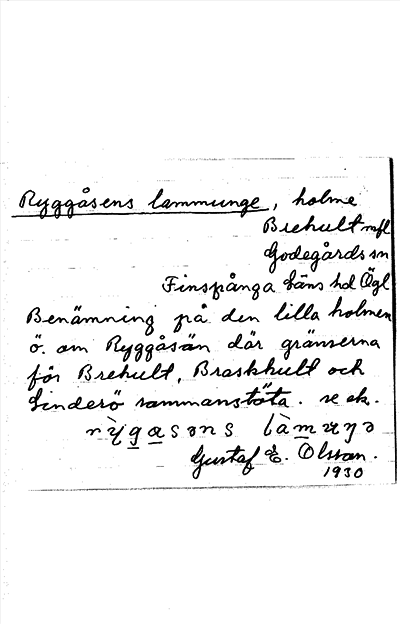 Ryggåsens lammunge, holme
Brehult mfl
Godegårds sn
Finspånga läns hd Ögl
Benämning på den lilla holmen
ö. om Ryggåsän där gränserna
för Brehult, Braskhult och
Linderö sammanstöta. se ek.
Gustaf E. Olsson.
1930